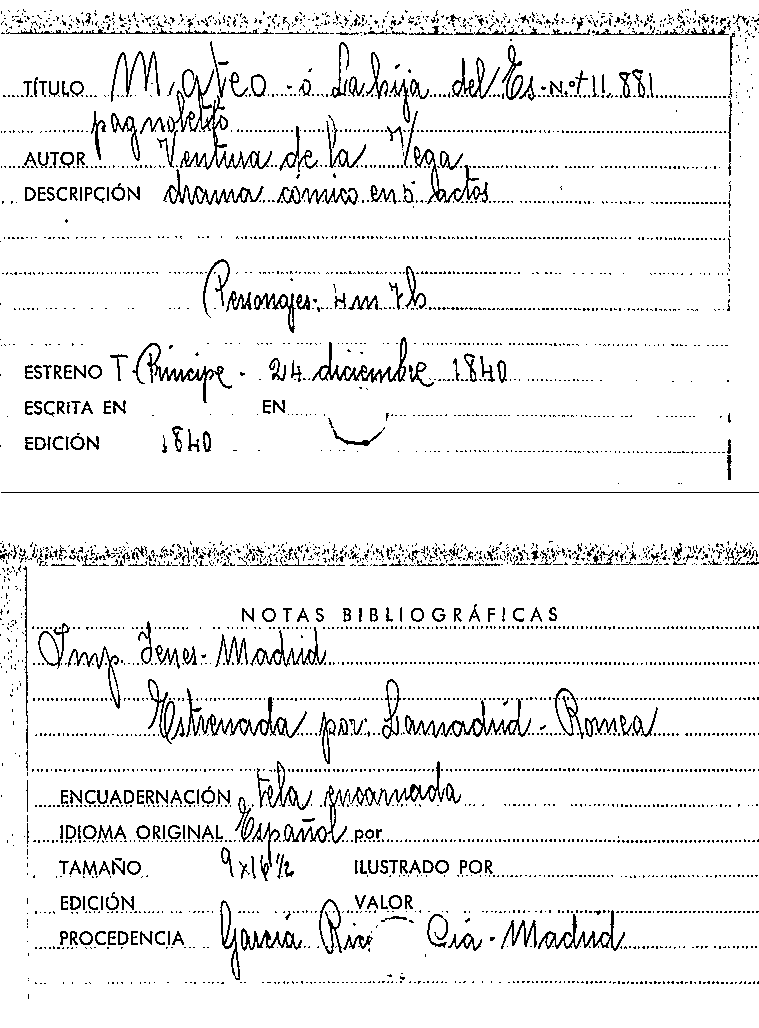 TÍTULO Mateo - ó La hija del Es- N.º 11.881
pagnoletto
AUTOR Ventura de la Vega
DESCRIPCIÓN drama cómico en 5 actos
Personajes: 4 m 7 h
ESTRENO T. Príncipe - 24 diciembre 1840
ESCRITA EN EN
EDICIÓN 1840
NOTAS BIBLIOGRÁFICAS
Imp. Yenes - Madrid
Estrenada por: Lamadrid - Romea
ENCUADERNACIÓN tela encarnada
IDIOMA ORIGINAL Español por
TAMAÑO 9 x 16 1/2 ILUSTRADO POR
EDICIÓN VALOR
PROCEDENCIA García Rico Cía - Madrid